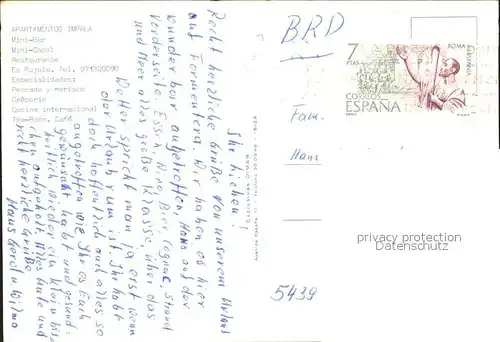 APARTAMENTOS IMPALA
Mini-Bar
Mini-Casal
Restaurante
Es Pujols. Tel. 971320090
Especialidades:
Pescado y marisco
Cocina internacional
Tea-Room, Café
Ihr Lieben!
Recht herzliche Grüße von unserem Urlaub
auf Formentera. Wir haben es hier
wunderbar angetroffen, Haus auf der
Vorderseite, Essen, Vino, Bier, Cognac, Strand
und Meer alles große Klasse, über das
Wetter spricht man ja erst wenn
der Urlaub rum ist. Ihr habt
doch hoffentlich auch alles so
angetroffen wie Ihr es Euch
gewünscht habt und gesund-
heitlich wieder ein klein biß-
chen aufgeholt. Alles Gute und
recht herzliche Grüße
Hans Gerd u. Wilma
BRD
7
PTAS
ROMA
CORREOS
ESPAÑA
Fam.
Hans
5439
privacy protection
Datenschutz